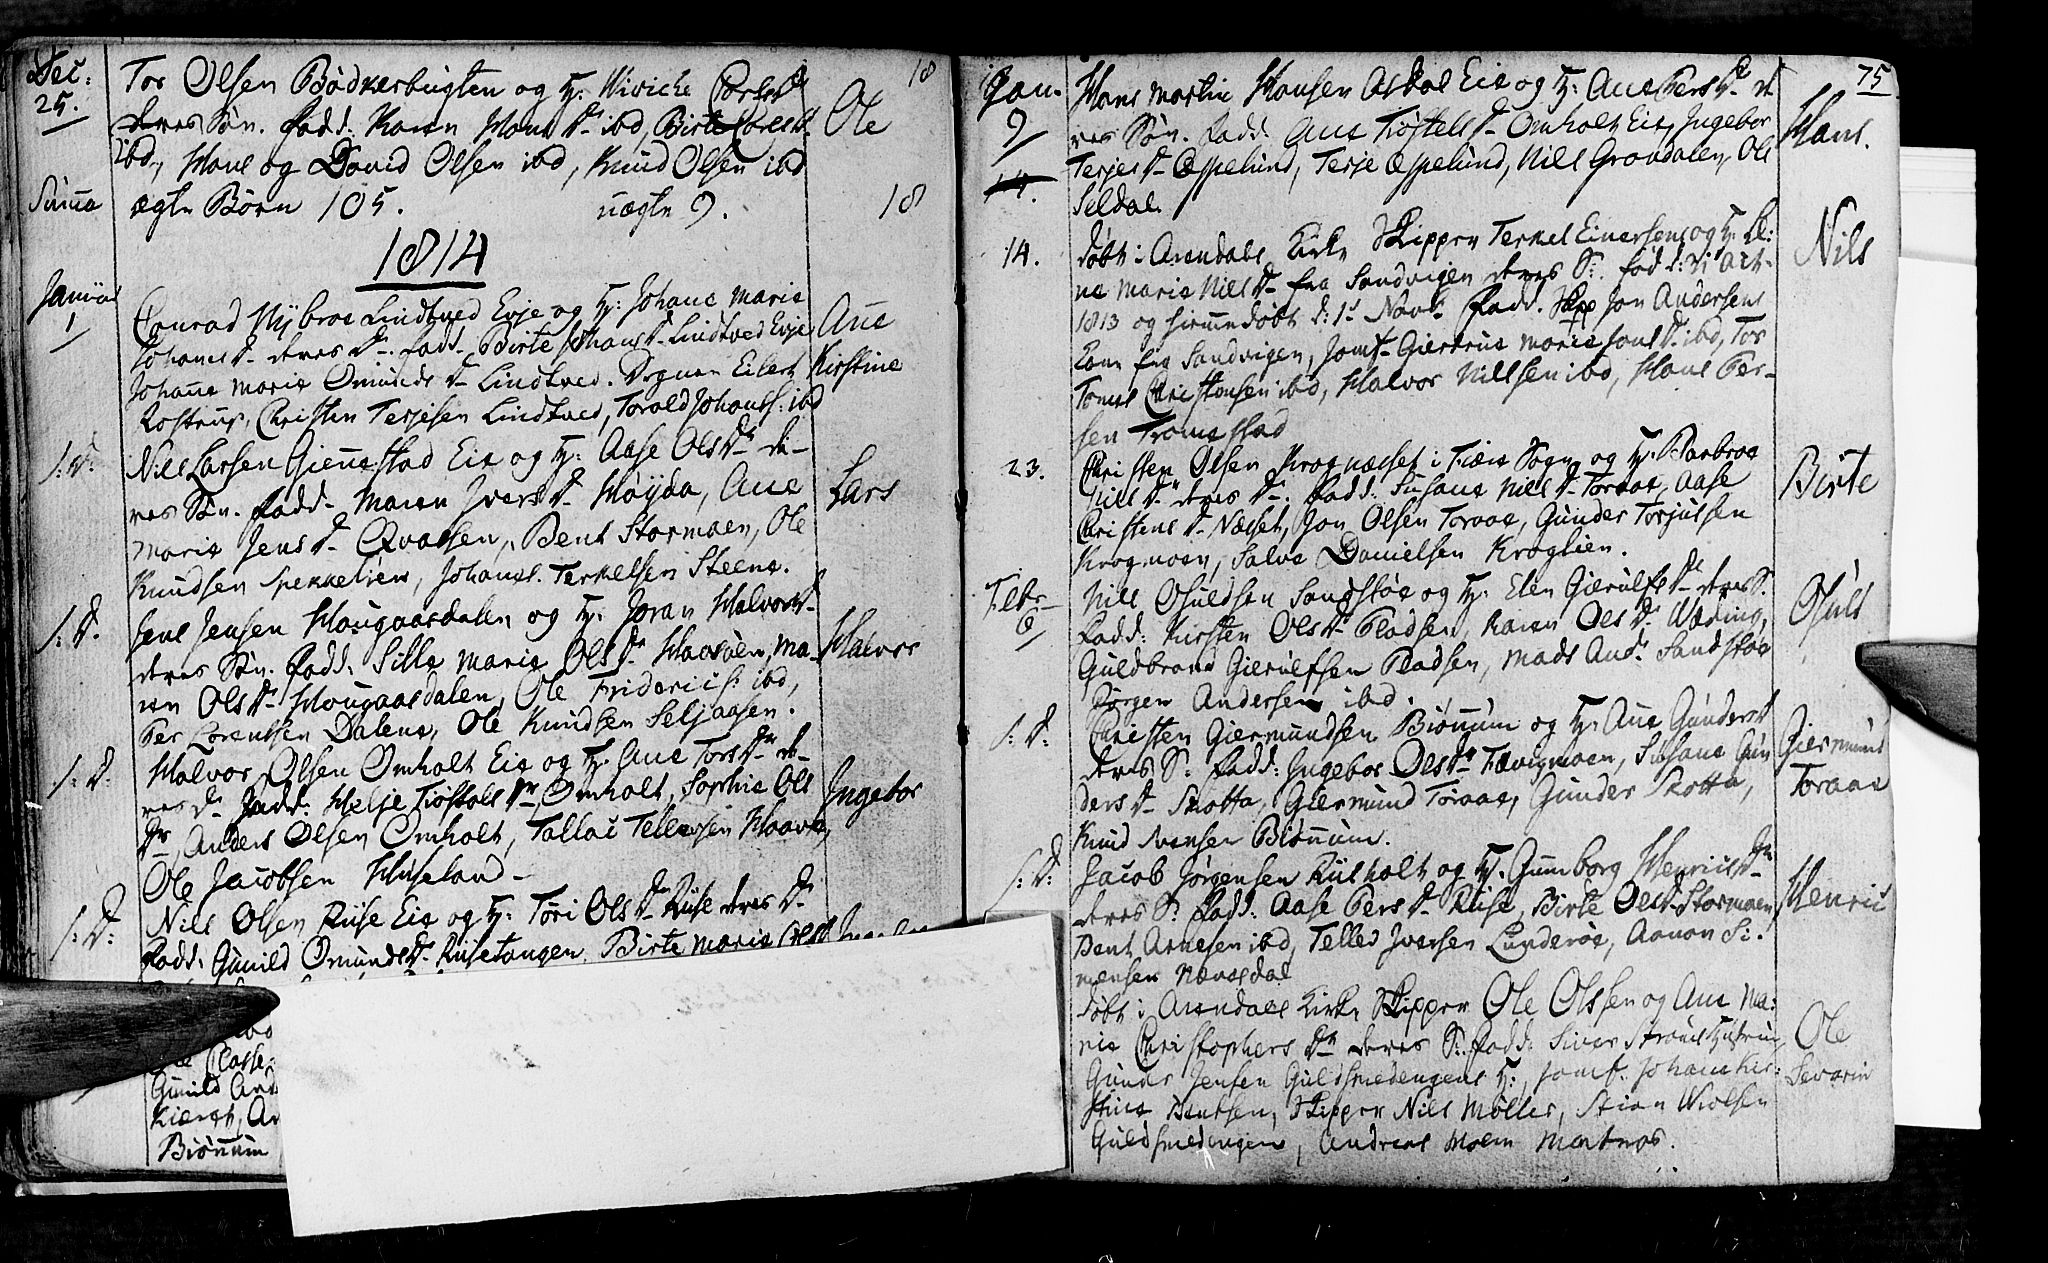 Dec:
25.
Tor Olsen Bödkerbugten og H: Wiviche Carls D
deres Søn. Fadd: Karen Hans D ibd, Birte Carls D
ibd, Hans og David Olsen ibd, Knud Olsen ibd
Ole
18
Suma
ægte Børn 105. uægte 9.
18
1814
Januar
1
Conrad Nybroe Lindtved Eye og H: Johane Marie
Johans D deres D. Fadd. Birte Johans D Lindtved Eye
Johanne Marie Omunds D Lindtved. Eilert
Rostrup, Christen Terjesen Lindtved, Torald Johans: ibd
Ane
Kirstine
S: D:
Nils Larsen Giennestad Eie og H: Aase Ols D de-
res Søn. Fadd. Maren Ivers D Høyda, Ane
Marie Jens D Qvassen, Bent Stormoen, Ole
Knudsen Spekkelien, Johanes Terkelsen Steene.
Lars
S: D.
Jens Jensen Hougaasdalen og H: Joran Halvors D
deres Søn. Fadd: Sille Marie Ols D, Ma-
ren Ols D Hougaasdalen, Ole Friderics: ibd,
Per Lorentsen Dalene, Ole Knudsen Seljaasen.
Halvor
S: D:
Halvor Olsen Omholt Eie og H. Ane Tors D de-
res D. Fadd: Helje Tostols D Omholt, Sophie Ols
D, Anders Olsen Omholt, Tallac Tellefsen Haave,
Ole Jacobsen Huseland
Ingebor
S: D:
Niels Olsen Ruse Eie og H: Tøri Ols D Ruse deres D
Fadd: Gunild Omunds D Rusetangen, Birte Marie
Ole Classe
Gunild And
Kierets, An
Biønnum
75
Jan.
9
Hans Martin Hansen Asdal Eie og H: Ane Pers D de
res Søn. Fadd. Ane Tostels D Omholt Eie, Ingebor
Terjes D Espelund, Terje Espelund, Nils Grovdalen, Ole
Seldal.
Hans.
14.
14.
døbt i Arendals Kirke Skipper Terkel Einersen og H: El:
ne Marie Niels D fra Sandvigen deres S: fød d: 31 Oct
1813 og hiemmedøbt d: 1 Nov. Fadd. Skip Jon Andersens
Kone fra Sandvigen, Jomf. Giertrue Marie Jons D ibd, Tor
Tomes Christensen ibd, Halvor Nilssen ibd, Hans Per-
sen Tromestad
Nils
23.
Christen Olsen Krognæsset i Fiære Sogn og H: Barbroe
Nils D deres D. Fadd: Susane Niels D Toraae, Aase
Christens D Næsset, Jon Olsen Toraae, Gunder Torjussen
Krogmoen, Salve Danielsen Kroglien.
Birte
Febr
6
Nils Osuldsen Sandstøe og H: Elen Gierulfs D deres S.
Fadd: Kirsten Ols D Pladsen, Karen Ols D Wæding,
Guldbrand Gierulfsen Pladsen, Mads And: Sandstøe
Jørgen Andersen ibd.
Osuld
S: D:
Christen Giermundsen Biønnum og H: Ane Gunders D
deres S: Fadd: Ingebor Ols D Fævigmoen, Susane Gun
ders D Skotta, Giermund Toraae, Gunder Skotta,
Knud Svensen Biønnum.
Giermund
Toraae
S: D:
Jacob Jørgensen Rusholt og H. Gunnborg Henrics D
deres S: Fadd: Aase Pers D Ruse, Birte Ols D Stormoen
Bent Arnesen ibd, Tellev Iversen Lunderøe, Aanon Si-
mensen Nævesdal
Henric
døbt i Arendals Kirke Skipper Ole Olssen og Ane Ma:
rie Christophers D deres S: Fadd: Siver Strøms Hustrue
Gunder Jensen Guldsmedengens H:, Jomf. Johane Kir:
stine Bentsen, Skipper Nils Møller, Stian Wiolsen
Guldsmedengen, Andreas Moen
Ole
Severin